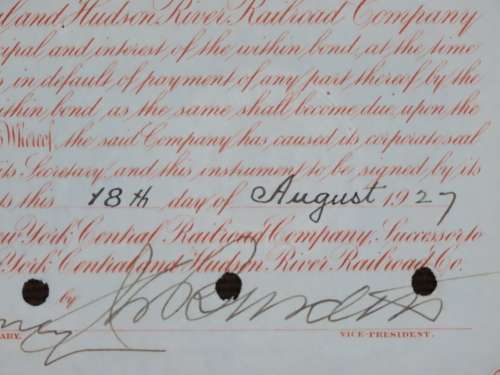 l and Hudson River Railroad Company
cipal and interest of the within bond, at the time
s in default of payment of any part thereof by the
within bond as the same shall become due upon the
Whereof, the said Company has caused its corporate seal
its Secretary, and this instrument to be signed by its
ts this 18th day of August 1927
New York Central Railroad Company, Successor to
York Central and Hudson River Railroad Co.
by
ARY. VICE-PRESIDENT.